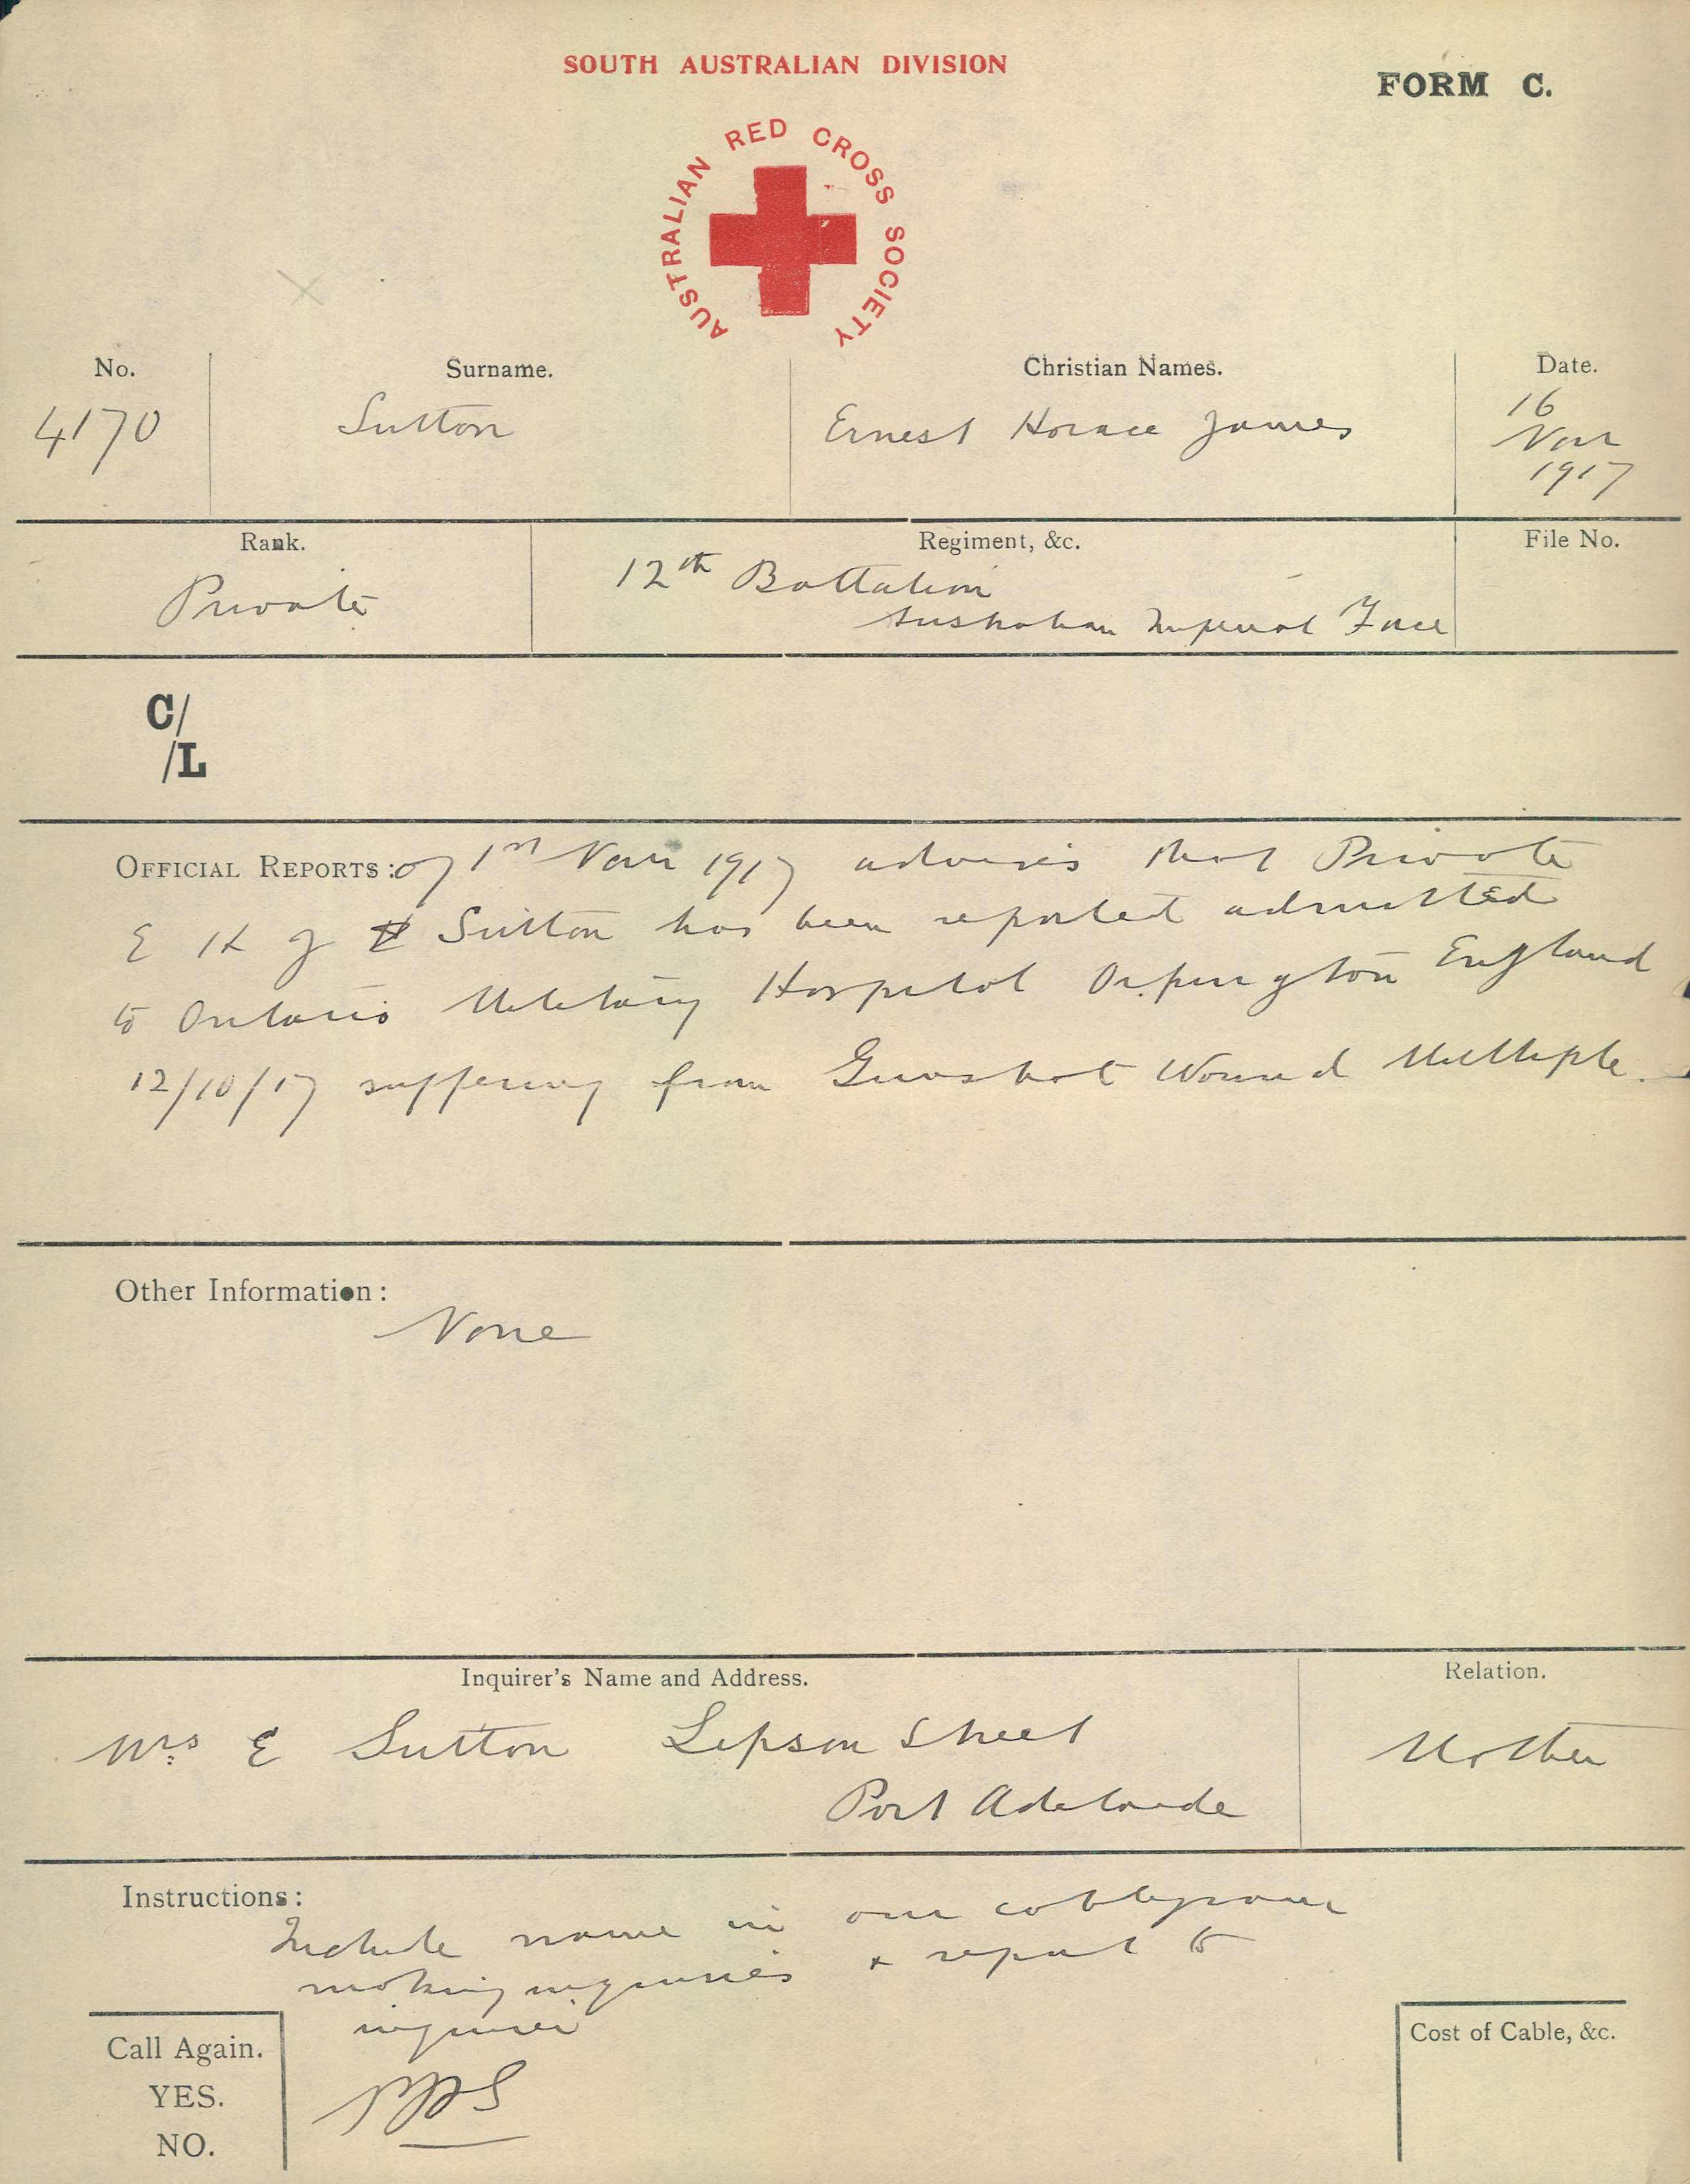 SOUTH AUSTRALIAN DIVISION
FORM C.
AUSTRALIAN RED CROSS SOCIETY
No.
Surname.
Christian Names.
Date.
4170
Sutton
Ernest Horace James
16
Novr
1917
Rank.
Regiment, &c.
File No.
Private
12th Battalion
Australian Imperial Force
C/
/L
OFFICIAL REPORTS: of 1st Novr 1917 advises that Private
E H J Sutton has been reported admitted
to Ontario Military Hospital Orpington England
12/10/17 suffering from Gunshot Wound Multiple.
Other Information:
None
Inquirer's Name and Address.
Relation.
Mrs E Sutton Lipson Street
Port Adelaide
Mother
Instructions:
Include name in our cablegram
making inquiries & report to
inquirer
Call Again.
YES.
NO.
Cost of Cable, &c.